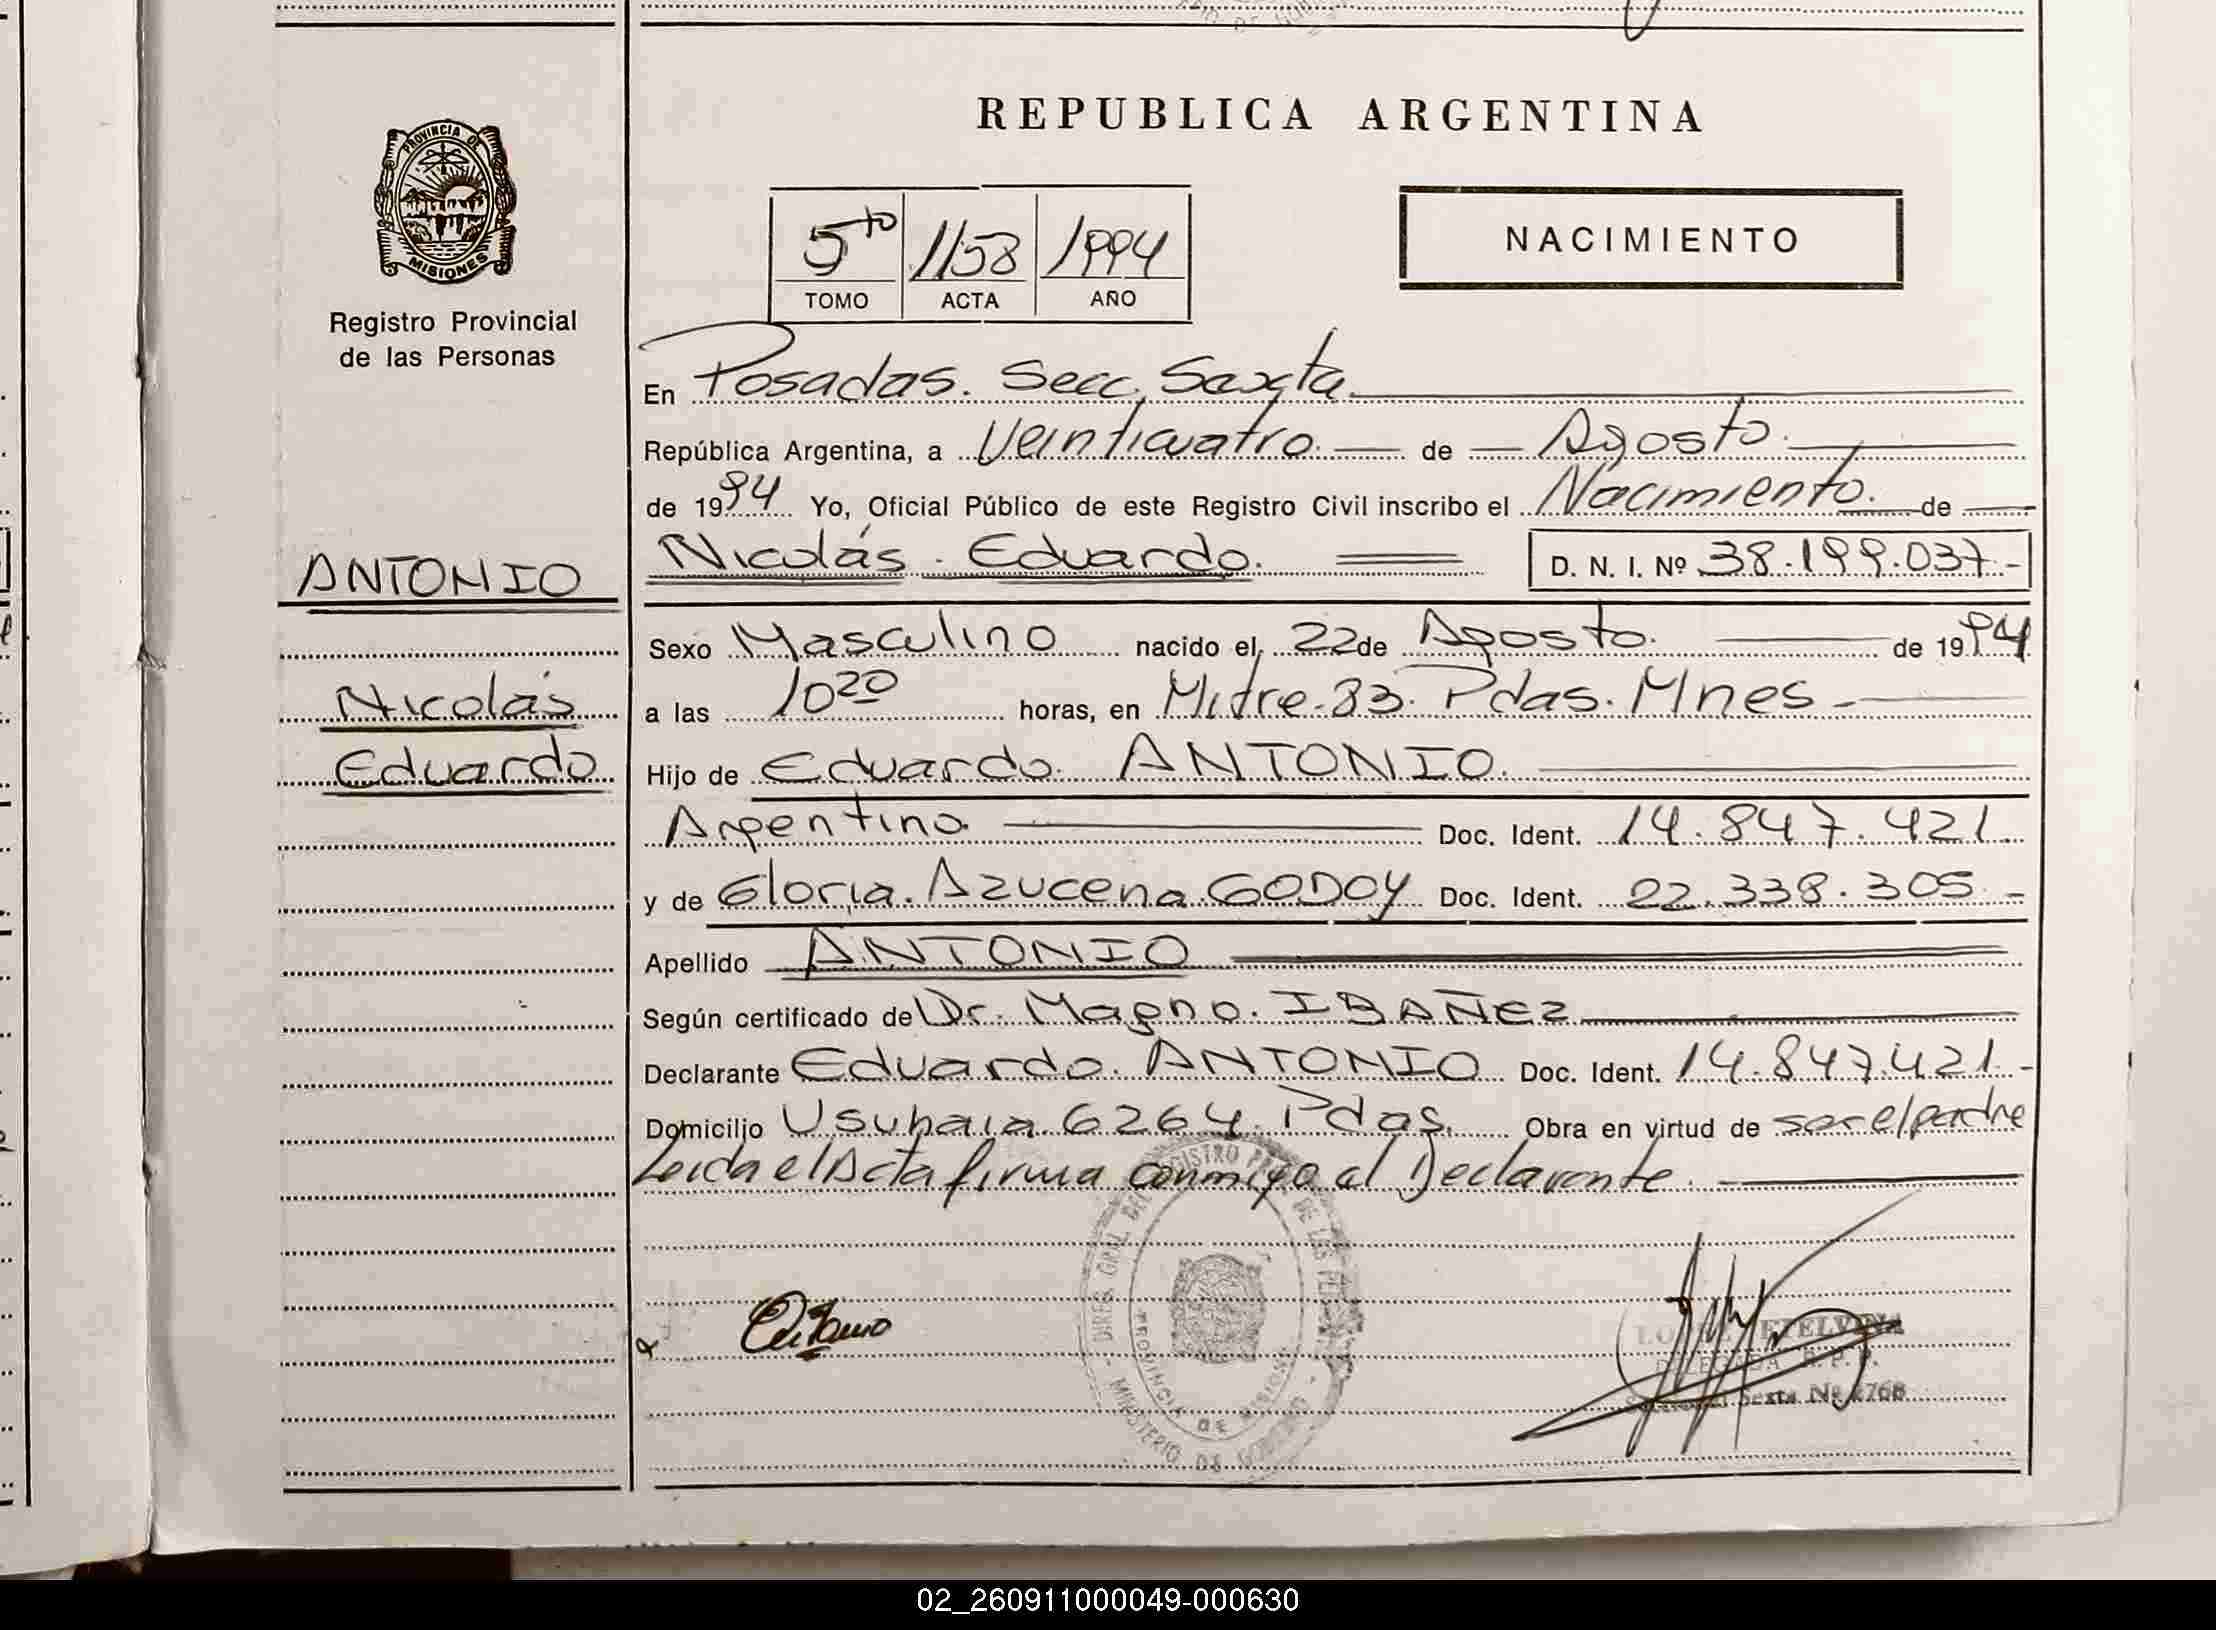 REPUBLICA ARGENTINA
PROVINCIA DE
MISIONES
Registro Provincial
de las Personas
5to 1158 1994
TOMO ACTA AÑO
NACIMIENTO
En Posadas. Secc. Sexta
República Argentina, a Veinticuatro de Agosto
de 1994 Yo, Oficial Público de este Registro Civil inscribo el Nacimiento. de
ANTONIO
Nicolás Eduardo. D. N. I. Nº 38.199.037.-
Sexo Masculino nacido el 22 de Agosto. de 1994
Nicolás
a las 10 20 horas, en Mitre-83. Pdas. Mnes -
Eduardo
Hijo de Eduardo ANTONIO.
Argentino Doc. Ident. 14.847.421
y de Gloria. Azucena. GODOY Doc. Ident. 22.338.305.-
Apellido ANTONIO
Según certificado de Dr. Magno. IBAÑEZ
Declarante Eduardo. ANTONIO Doc. Ident. 14.847.421.-
Domicilio Usuhaia 6264. Pdas. Obra en virtud de ser el padre
Leida el Acta firma conmigo al Declarante.
PROVINCIA DE MISIONES
MINISTERIO DE GOBIERNO
ETELVINA
DELEGADA R. P. P.
Sexta
02_260911000049-000630